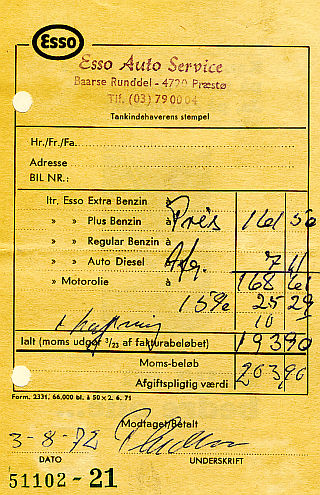 Esso
Esso Auto Service
Baarse Runddel - 4720 Præstø
Tlf. (03) 79 00 04
Tankindehaverens stempel
Hr./Fr./Fa.
Adresse
BIL NR.:
ltr. Esso Extra Benzin à
» » Plus Benzin à Pris 161 50
» » Regular Benzin à
» » Auto Diesel à Afg. 7 11
» Motorolie à 168 61
15% 25 29
10
Ialt (moms udgør 3/23 af fakturabeløbet) 193 90
Moms-beløb
203,90
Afgiftspligtig værdi
Form. 2331. 66,000 bl. à 50 x 2. 6. 71
Modtaget/Betalt
3-8-72
DATO UNDERSKRIFT
51102-21